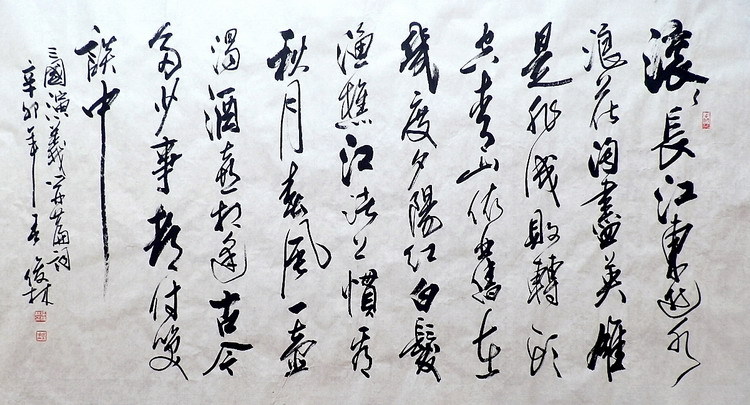 滚々長江東逝水
浪花淘盡英雄
是非成敗轉頭
空青山依舊在
幾度夕陽紅白髮
漁樵江渚上慣看
秋月春風一壺
濁酒喜相逢古今
多少事都付笑
談中
三國演義開篇詞
辛卯年 俊林